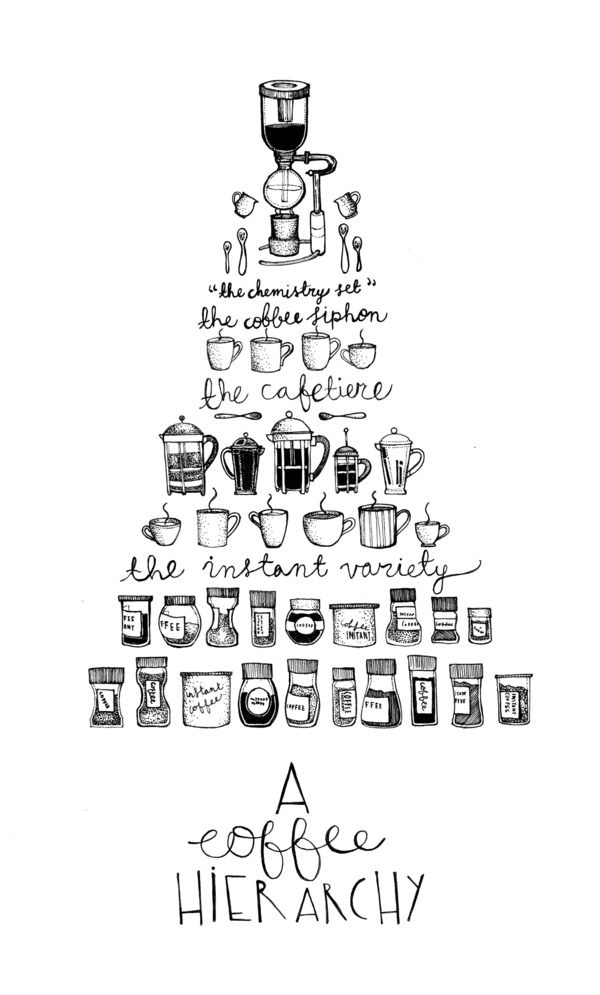 "the chemistry set"
the coffee siphon
the cafetiere
the instant variety
FEE
ANT
FFEE
COFFEE
coffee
INSTANT
INSTANT
COFFEE
coffee
COFFEE
coffee
instant
coffee
INSTANT
COFFEE
COFFEE
FFEE
coffee
FFEE
INSTANT
COFFEE
A
coffee
HIERARCHY